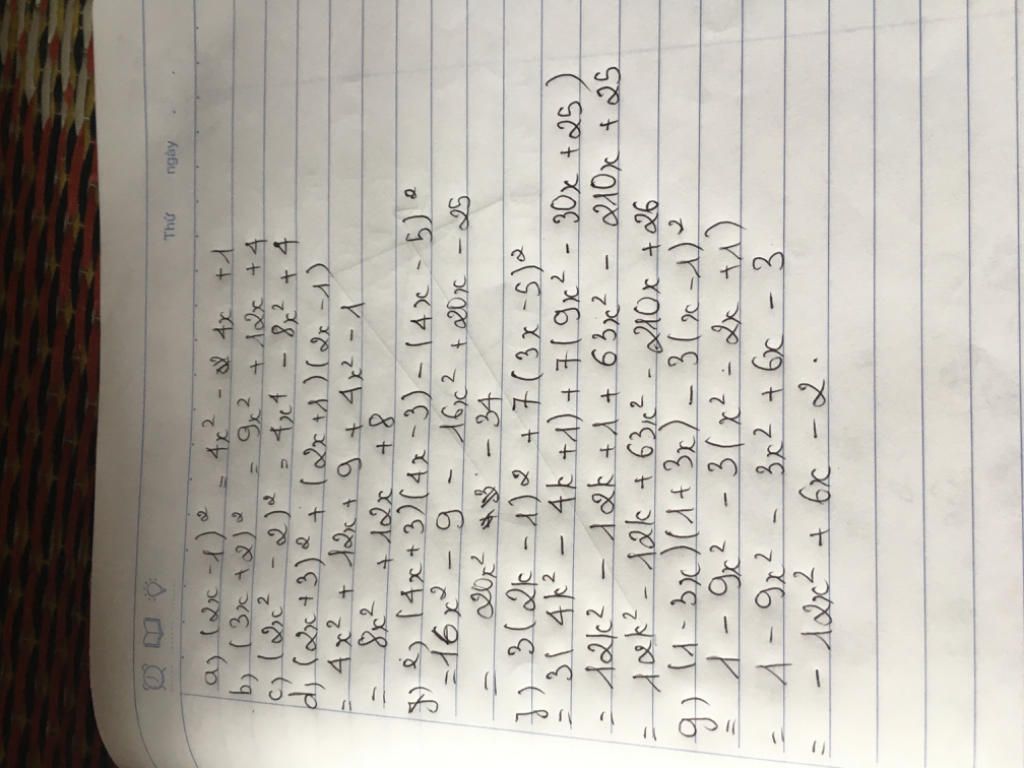 Thứ ngày
a) (2x - 1)² = 4x² - 4x + 1
b) (3x + 2)² = 9x² + 12x + 4
c) (2x² - 2)² = 4x4 - 8x² + 4
d) (2x + 3)² + (2x + 1)(2x - 1)
= 4x² + 12x + 9 + 4x² - 1
= 8x² + 12x + 8
(4x + 3)(4x - 3) - (4x - 5)²
= 16x² - 9 - 16x² + 20x - 25
= 20x² - 34
3(2k - 1)² + 7(3x - 5)²
= 3(4k² - 4k + 1) + 7(9x² - 30x + 25)
= 12k² - 12k + 1 + 63x² - 210x + 25
= 12k² - 12k + 63x² - 210x + 26
g) (1 - 3x)(1 + 3x) - 3(x - 1)²
= 1 - 9x² - 3(x² - 2x + 1)
= 1 - 9x² - 3x² + 6x - 3
= - 12x² + 6x - 2.